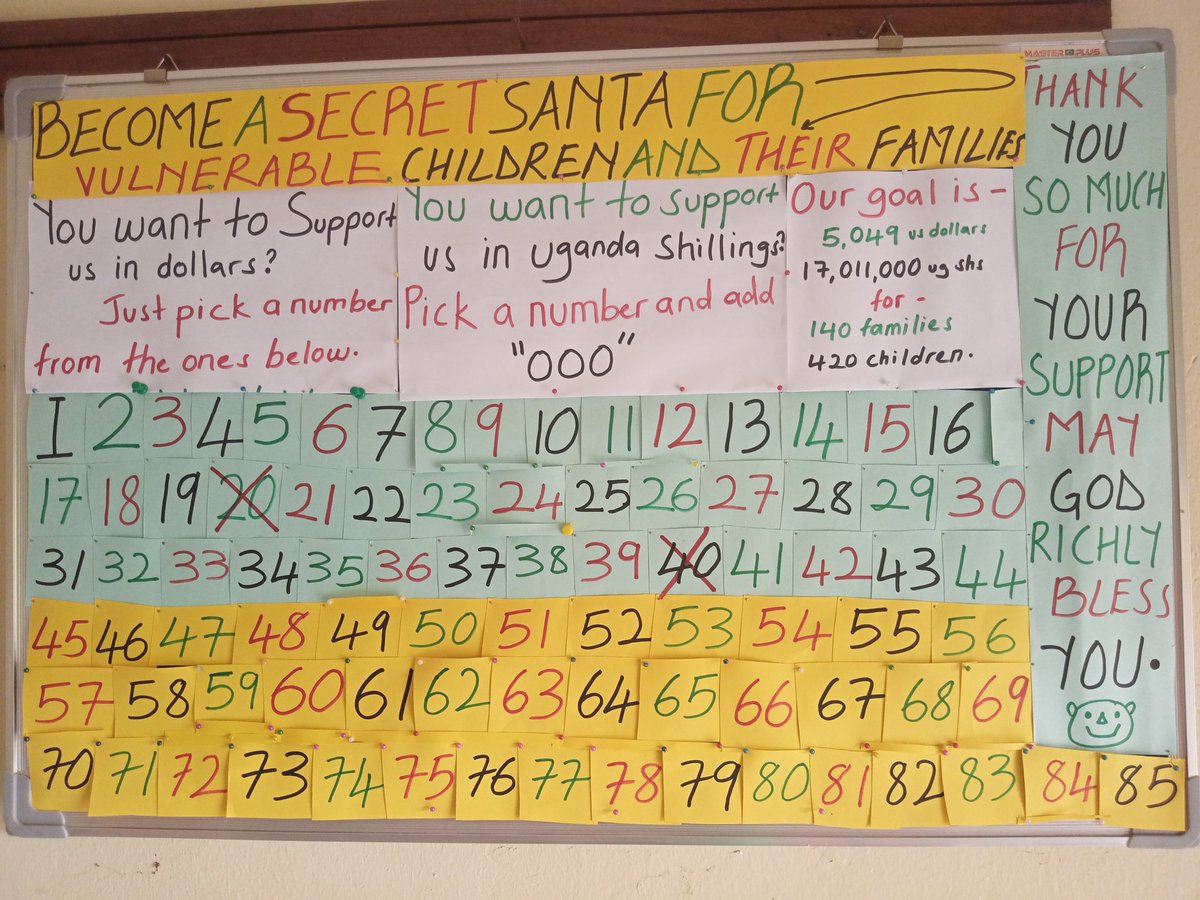 MASTER PLUS
BECOME A SECRET SANTA FOR
VULNERABLE CHILDREN AND THEIR FAMILIES
You want to Support
us in dollars?
Just pick a number
from the ones below.
You want to support
us in Uganda Shillings?
Pick a number and add
"000"
Our goal is -
5,049 us dollars
17,011,000 ug shs
for -
140 families
420 children.
1 2 3 4 5 6 7 8 9 10 11 12 13 14 15 16
17 18 19 20 21 22 23 24 25 26 27 28 29 30
31 32 33 34 35 36 37 38 39 40 41 42 43 44
45 46 47 48 49 50 51 52 53 54 55 56
57 58 59 60 61 62 63 64 65 66 67 68 69
70 71 72 73 74 75 76 77 78 79 80 81 82 83 84 85
THANK
YOU
SO MUCH
FOR
YOUR
SUPPORT
MAY
GOD
RICHLY
BLESS
YOU.